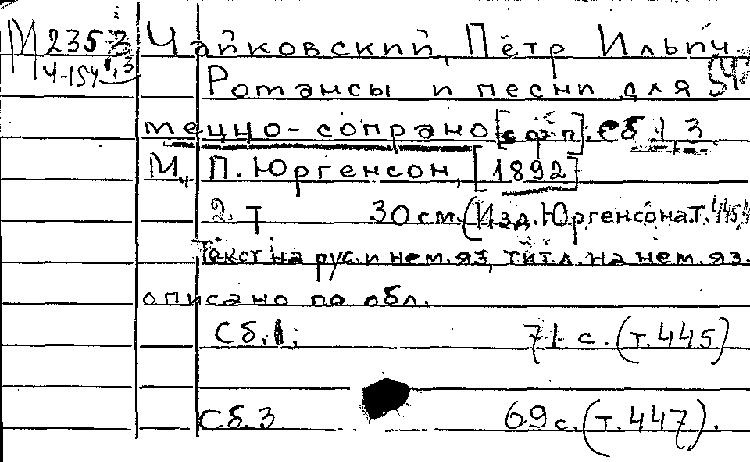 М 235 3 Чайковский, Пётр Ильич.
Ч-154 1,3 Романсы и песни для
меццо-сопрано [с фп]. Сб. 1, 3
М., П. Юргенсон, [1892]
2 т 30 см. (Изд. Юргенсона. Т. 445,
Текст на рус. и нем. яз, титл. на нем. яз.
описано по обл.
Сб. 1. 71 с. (т. 445)
Сб. 3 69 с. (т. 447).